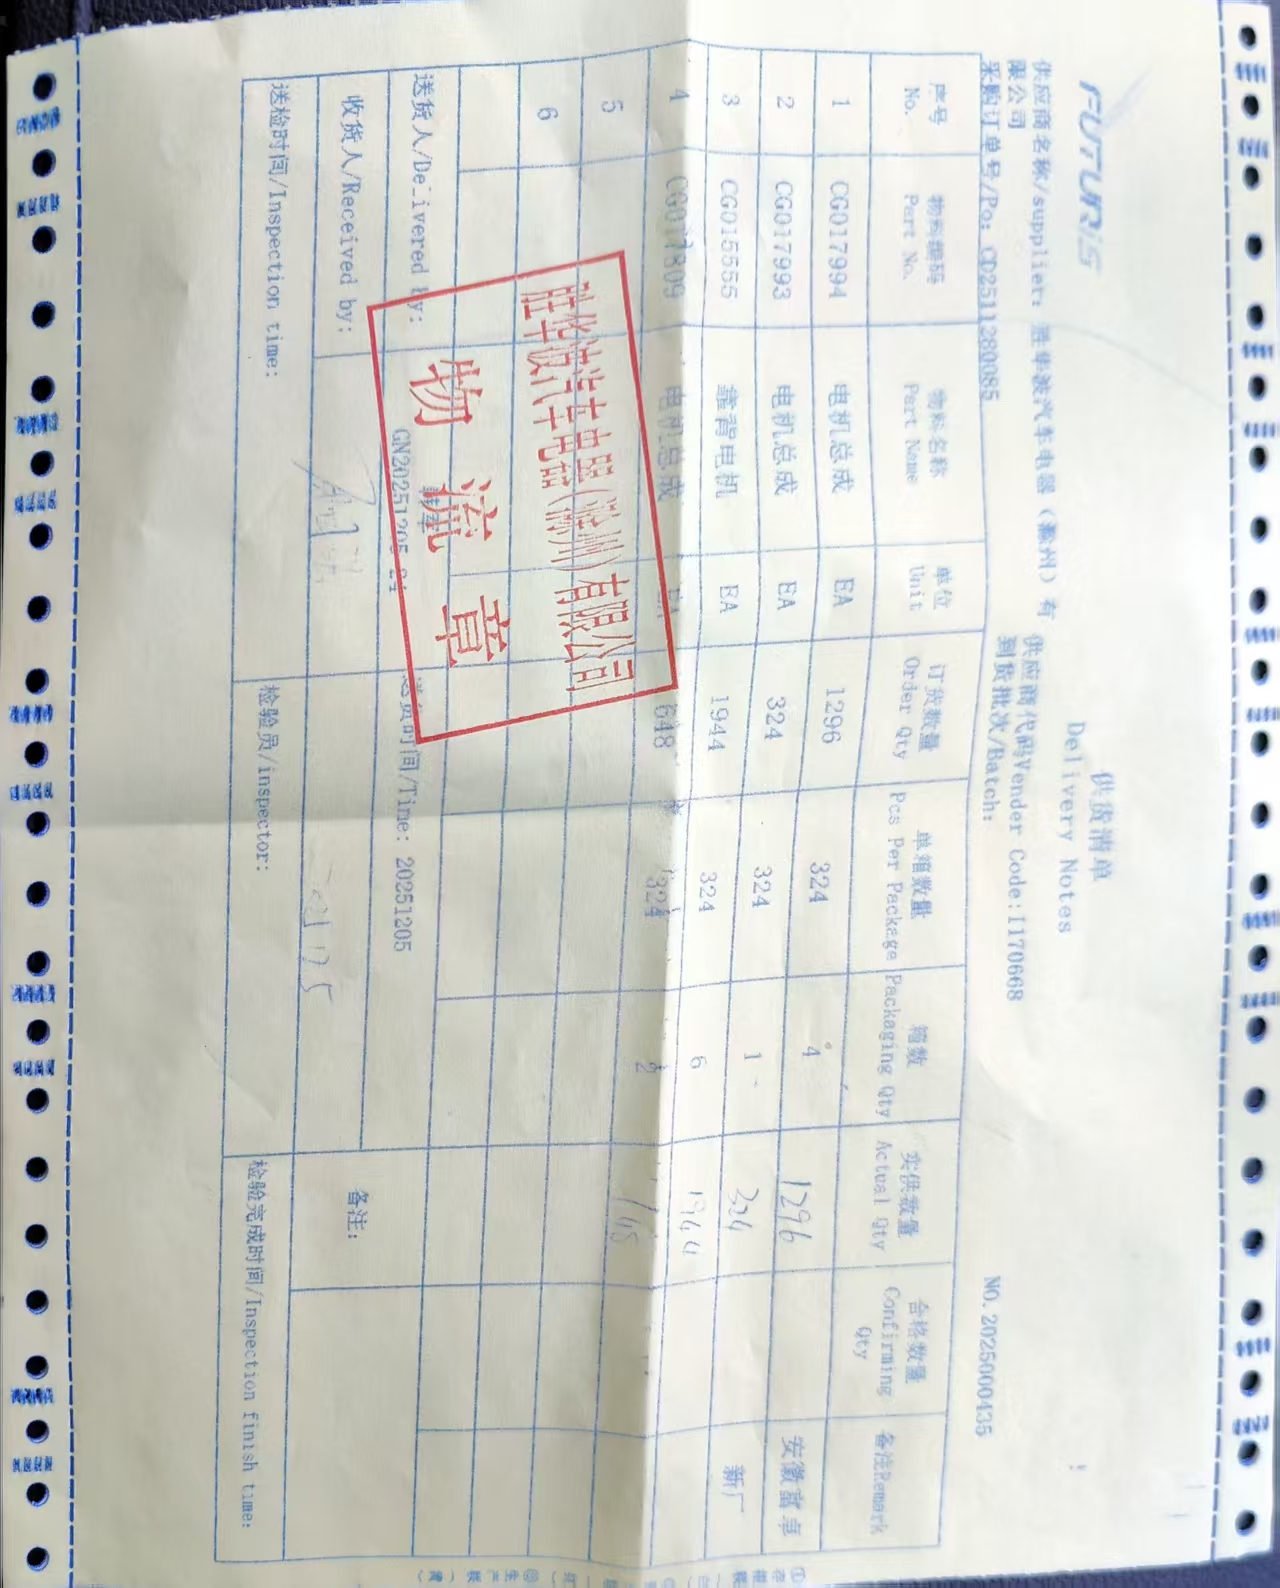 FUTURiS
供货清单
Delivery Notes
供应商名称/supplier: 胜华波汽车电器（滁州）有限公司
供应商代码Vender Code:I170668
采购订单号/Po: CD2511280085
到货批次/Batch:
NO.2025000435
序号 No. 物料编码 Part No. 物料名称 Part Name 单位 Unit 订货数量 Order Qty 单箱数量 Pcs Per Package 箱数 Packaging Qty 实供数量 Actual Qty 合格数量 Confirming Qty 备注Remark
1 CG017994 电机总成 EA 1296 324 4 1296 安徽富卓
2 CG017993 电机总成 EA 324 324 1 324 新厂
3 CG015555 靠背电机 EA 1944 324 6 1944
4 CG017809 电机总成 EA 648 324 2
5
6
胜华波汽车电器(滁州)有限公司
物流章
送货人/Delivered by:
GN20251205
送货时间/Time: 20251205
收货人/Received by:
备注:
送检时间/Inspection time:
检验员/inspector:
检验完成时间/Inspection finish time: